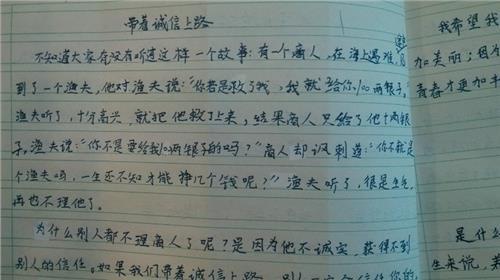 带着诚信上路
不知道大家有没有听过这样一个故事:有一个商人,在海上遇难,遇
到了一个渔夫,他对渔夫说:"你若是救了我,我就给你100两银子。"
渔夫听了,十分高兴,就把他救了上来,结果商人只给了他十两银
子。渔夫说:"你不是要给我100两银子的吗?"商人却讽刺道:"你不就是
个渔夫吗,一生还不知才能挣几个钱呢?"渔夫听了,很是生气,
再也不理他了。
为什么别人都不理商人了呢?是因为他不诚实,获得不到
别人的信任。如果我们带着诚信上路,别人
我希望我
加美丽;因为
青春才更加
是什么
生来说